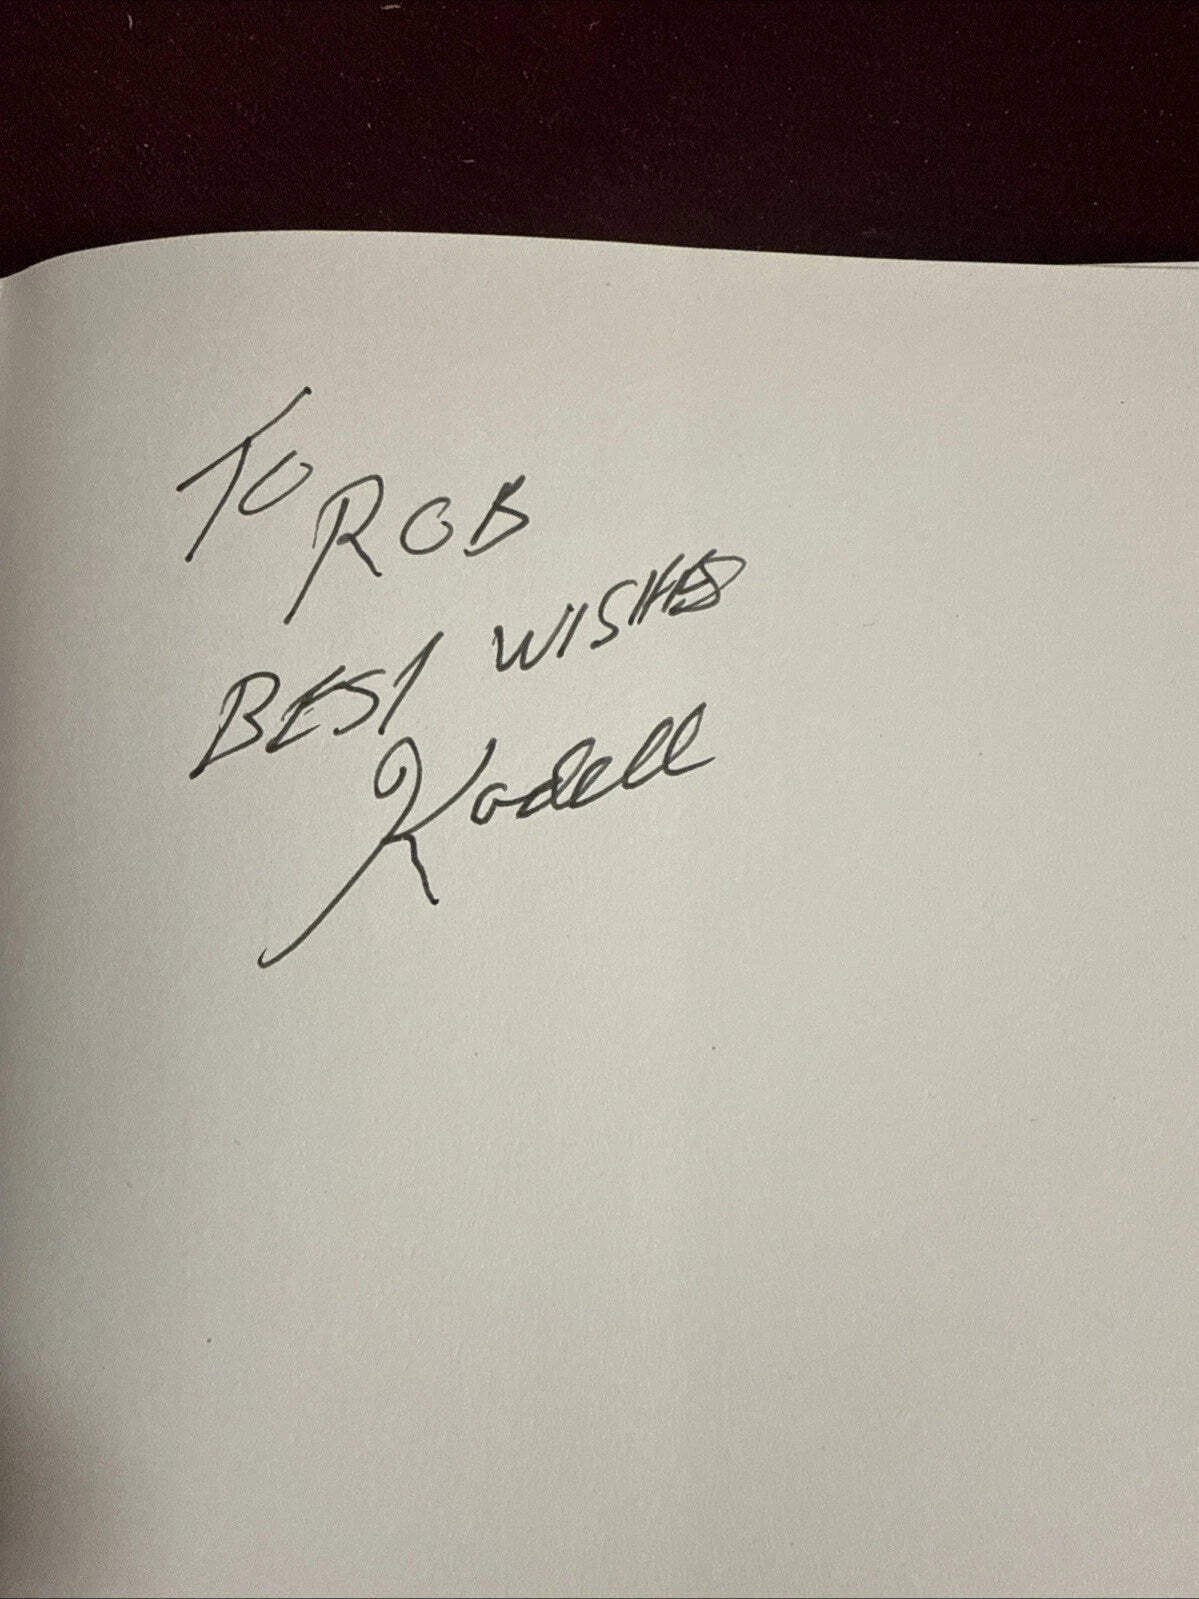 TO ROB
BEST WISHES
Kodell